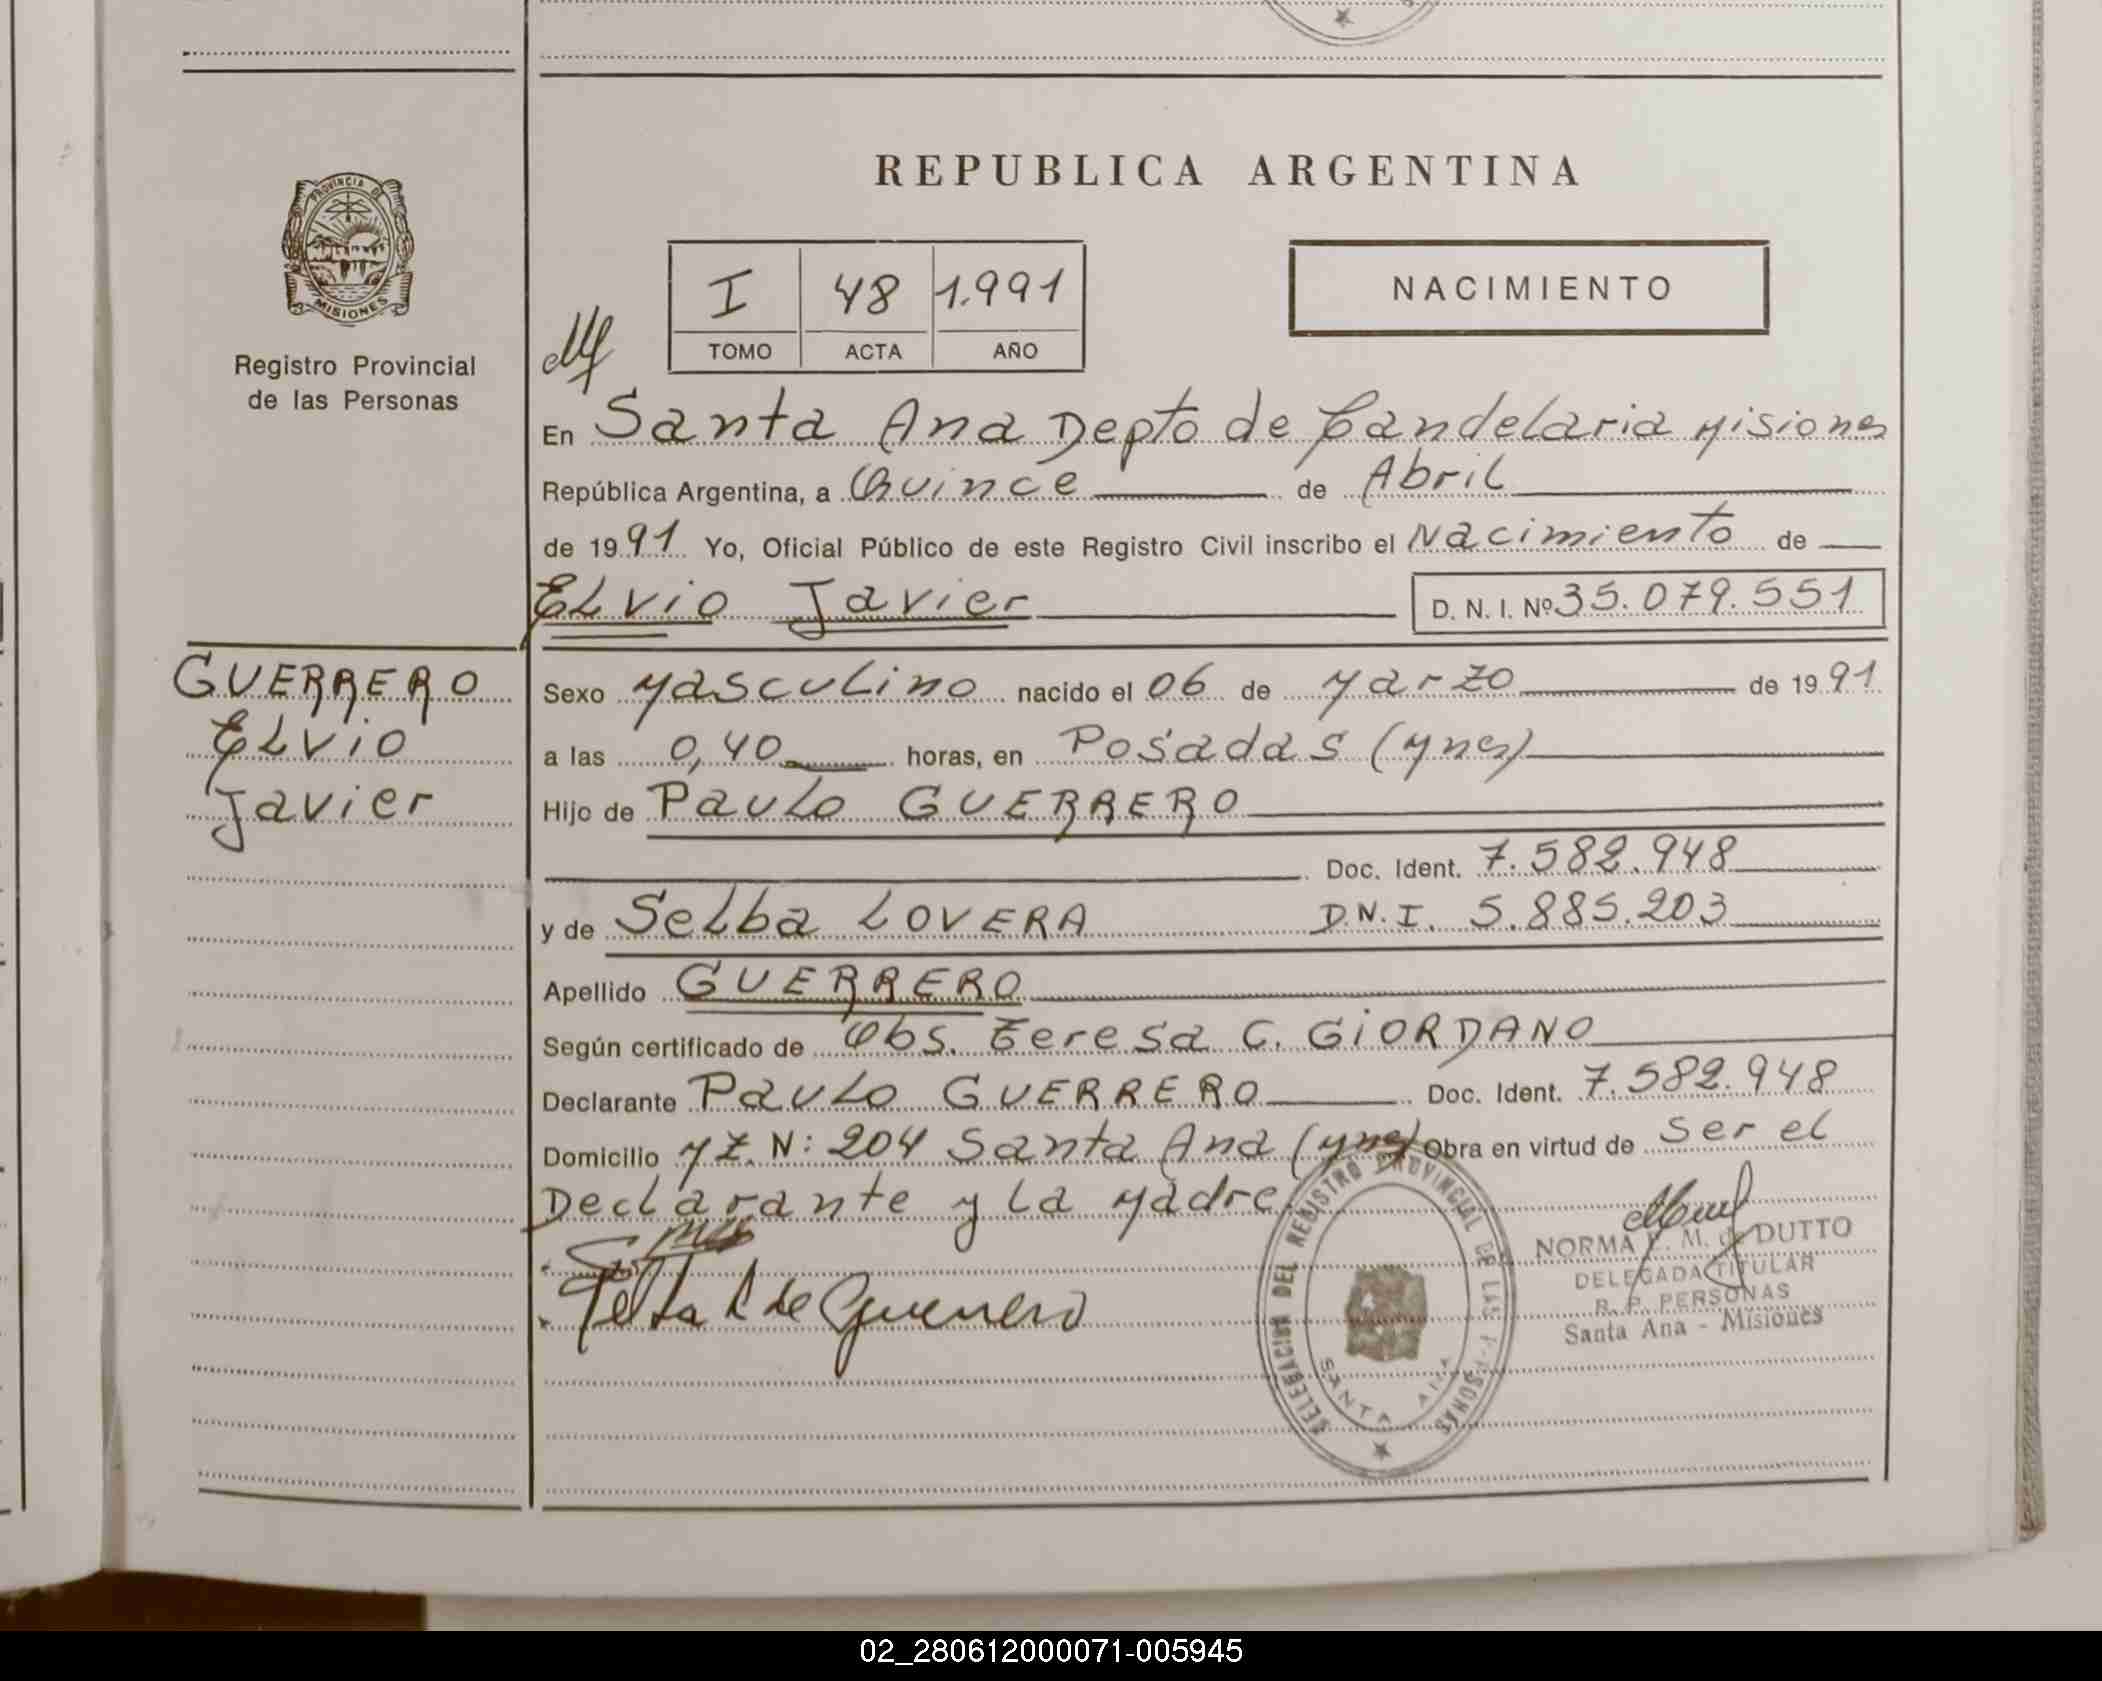 REPUBLICA ARGENTINA
PROVINCIA DE MISIONES
Registro Provincial
de las Personas
I 48 1.991
TOMO ACTA AÑO
NACIMIENTO
En Santa Ana Depto de Candelaria Misiones
República Argentina, a Quince de Abril
de 1991 Yo, Oficial Público de este Registro Civil inscribo el Nacimiento de
ELvio Javier D. N. I. Nº 35.079.551
GUERRERO
ELvio
Javier
Sexo Masculino nacido el 06 de Marzo de 1991
a las 0,40 horas, en Posadas (Mnes)
Hijo de Paulo GUERRERO
Doc. Ident. 7.582.948
y de Selba LOVERA D.N.I. 5.885.203
Apellido GUERRERO
Según certificado de Obs. Teresa C. GIORDANO
Declarante Paulo GUERRERO Doc. Ident. 7.582.948
Domicilio MZ. N: 204 Santa Ana (Mnes) Obra en virtud de Ser el
Declarante y la Madre
de Guerrero
DELEGACION DEL REGISTRO PROVINCIAL DE LAS PERSONAS
SANTA ANA
NORMA M. DUTTO
DELEGADA TITULAR
R. P. PERSONAS
Santa Ana - Misiones
02_280612000071-005945